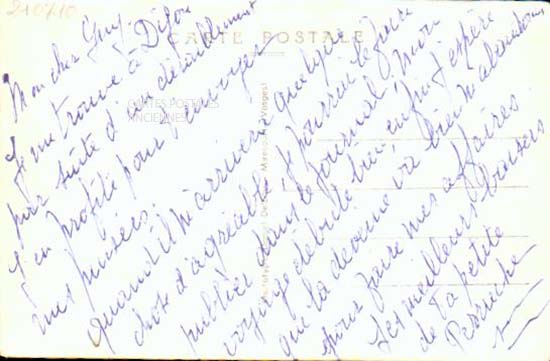 210710
CARTE POSTALE
CARTES POSTALES
ANCIENNES
Mon cher Guy,
Je me trouve à Dijon
par suite d'un déraillement
j'en profite pour t'envoyer
mes pensées.
quand il m'arrivera quelque
chose d'agréable je pourrai le faire
publier dans le journal, mon
voyage débute bien, enfin j'espère
que la déveine va bien m'abandonner
pour faire mes affaires
Les meilleurs baisers
de ta petite